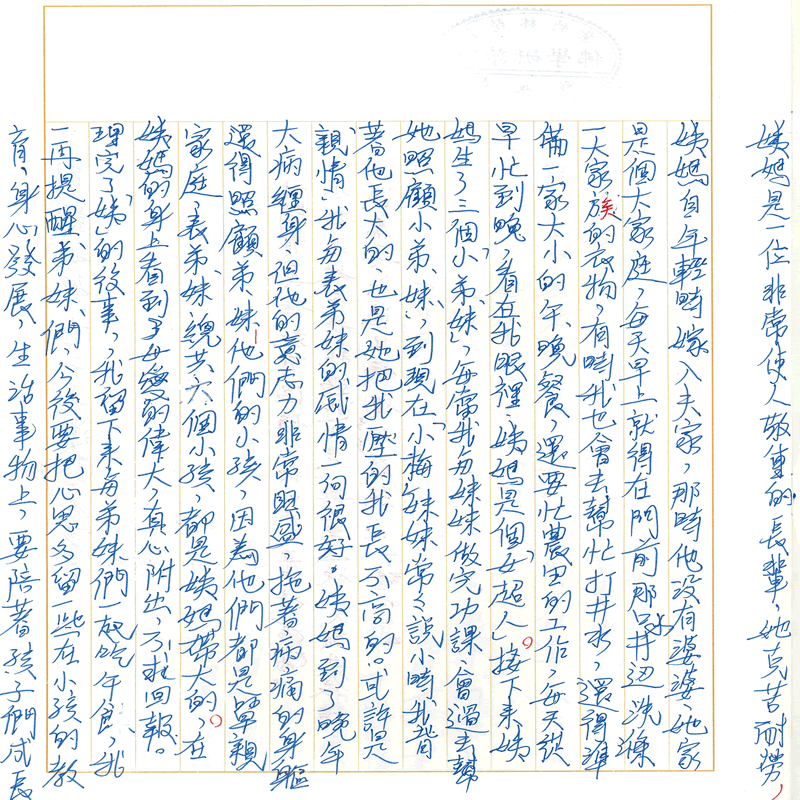 姨媽是一位非常使人敬重的長輩，她克苦耐勞，
姨媽自年輕時嫁入夫家，那時他沒有婆婆，她家
是個大家庭，每天早上就得在門前那口井边洗滌
一大家族的衣物，有時我也會去幫忙打井水，還得準
備一家大小的午、晚餐，還要忙農田的工作，每天從
早忙到晚，看在我眼裡，姨媽是個「女超人」。接下來，姨
媽生了三個「小弟、妹」，每當我每妹妹做完功課，會過去幫
她照顧小弟、妹，到現在「小梅」妹妹常々說小時我背
著他長大的，也是她把我壓的我長不高的。或許是
「親情」我每表弟妹的感情一向很好。姨媽到了晚年
大病纏身，但他的意志力非常旺盛，拖著病痛的身軀
還得照顧弟、妹他們的小孩，因為他們都是單親
家庭，表弟、妹總共六個小孩，都是姨媽帶大的。在
姨媽的身上看到了母愛的偉大，真心附出，不求回報。
理完了「姨」的後事，我留下來每弟妹們一起吃午飯，我
一再提醒弟、妹們，今後要把心思多留一些在小孩的教
育，身心發展，生活事物上，要陪著孩子們成長